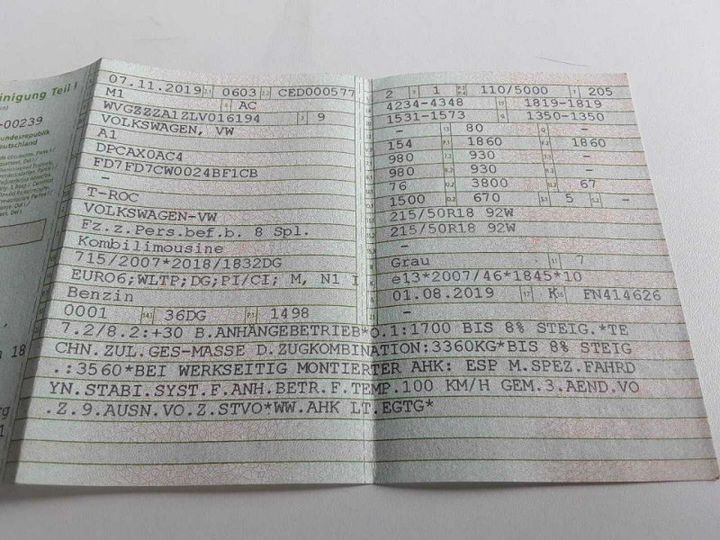 inigung Teil I
-00239
undesrepublik
eutschland
07.11.2019 0603 CED000577
M1 AC
WVGZZZA1ZLV016194 9
VOLKSWAGEN, VW
A1
DPCAX0AC4
FD7FD7CW0024BF1CB
-
T-ROC
VOLKSWAGEN-VW
Fz.z.Pers.bef.b. 8 Spl.
Kombilimousine
715/2007*2018/1832DG
EURO6;WLTP;DG;PI/CI; M, N1 I
Benzin
0001 36DG 1498
2 1 110/5000 205
4234-4348 1819-1819
1531-1573 1350-1350
- 80 -
154 1860 1860
980 930 -
980 930 -
76 3800 67
1500 670 5 -
215/50R18 92W
215/50R18 92W
-
Grau 7
e13*2007/46*1845*10
01.08.2019 K FN414626
7.2/8.2:+30 B.ANHÄNGEBETRIEB*O.1:1700 BIS 8% STEIG.*TE
CHN.ZUL.GES-MASSE D.ZUGKOMBINATION:3360KG*BIS 8% STEIG
.:3560*BEI WERKSEITIG MONTIERTER AHK: ESP M.SPEZ.FAHRD
YN.STABI.SYST.F.ANH.BETR.F.TEMP.100 KM/H GEM.3.AEND.VO
.Z.9.AUSN.VO.Z.STVO*WW.AHK LT.EGTG*